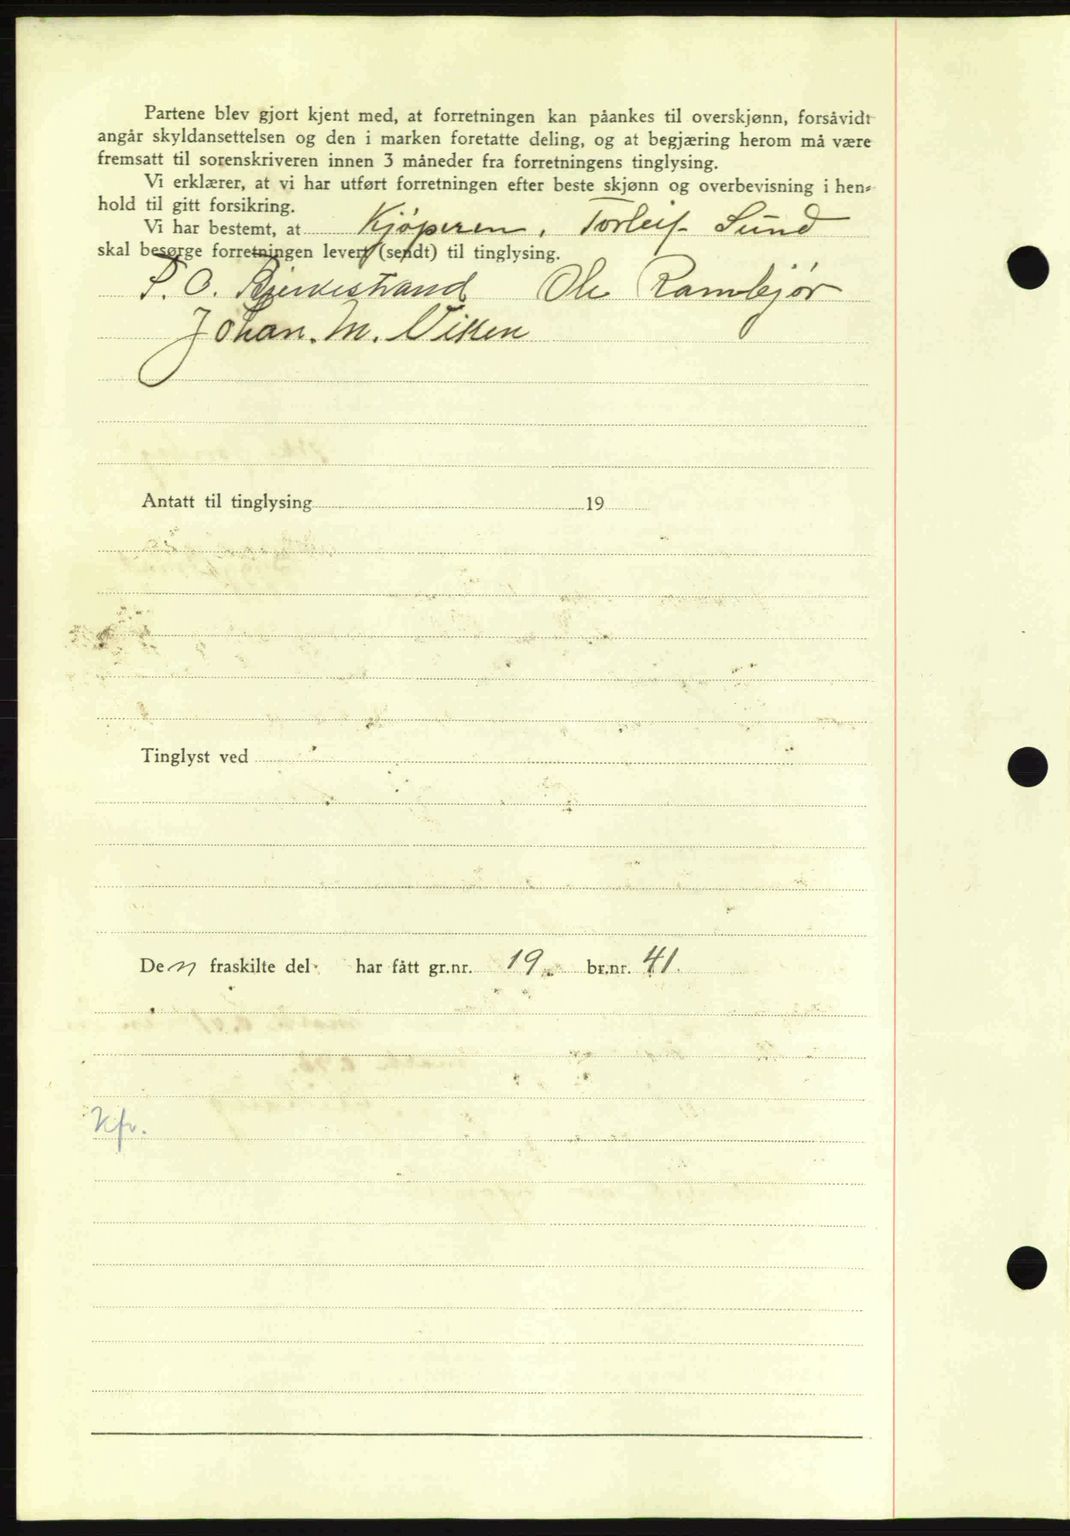 Partene blev gjort kjent med, at forretningen kan påankes til overskjønn, forsåvidt
angår skyldansettelsen og den i marken foretatte deling, og at begjæring herom må være
fremsatt til sorenskriveren innen 3 måneder fra forretningens tinglysing.
Vi erklærer, at vi har utført forretningen efter beste skjønn og overbevisning i hen-
hold til gitt forsikring.
Vi har bestemt, at Kjøperen, Torleif Sund
skal besørge forretningen levert (sendt) til tinglysing.
P. O. Bjerkestrand Ole Rambjør
Johan. M. Viken
Antatt til tinglysing 19
Tinglyst ved
Den fraskilte del har fått gr.nr. 19. br.nr. 41.
Kfr.